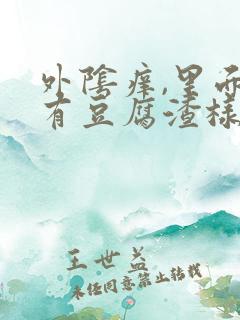 外陰痒,里面
有豆腐渣樣
王世益
未经同意禁止转载